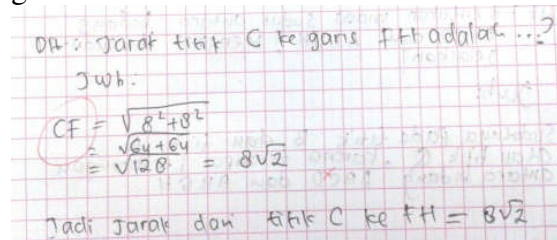 Dit : Jarak titik C ke garis FH adalah ...?
Jwb :
CF = √8²+8²
= √64+64
= √128 = 8√2
Jadi Jarak dari titik C ke FH = 8√2